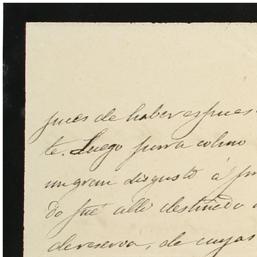 pues de haber espues
te. Luego para colmo
un gran disgusto á
do fué allí destinado
de reserva, de cuyas